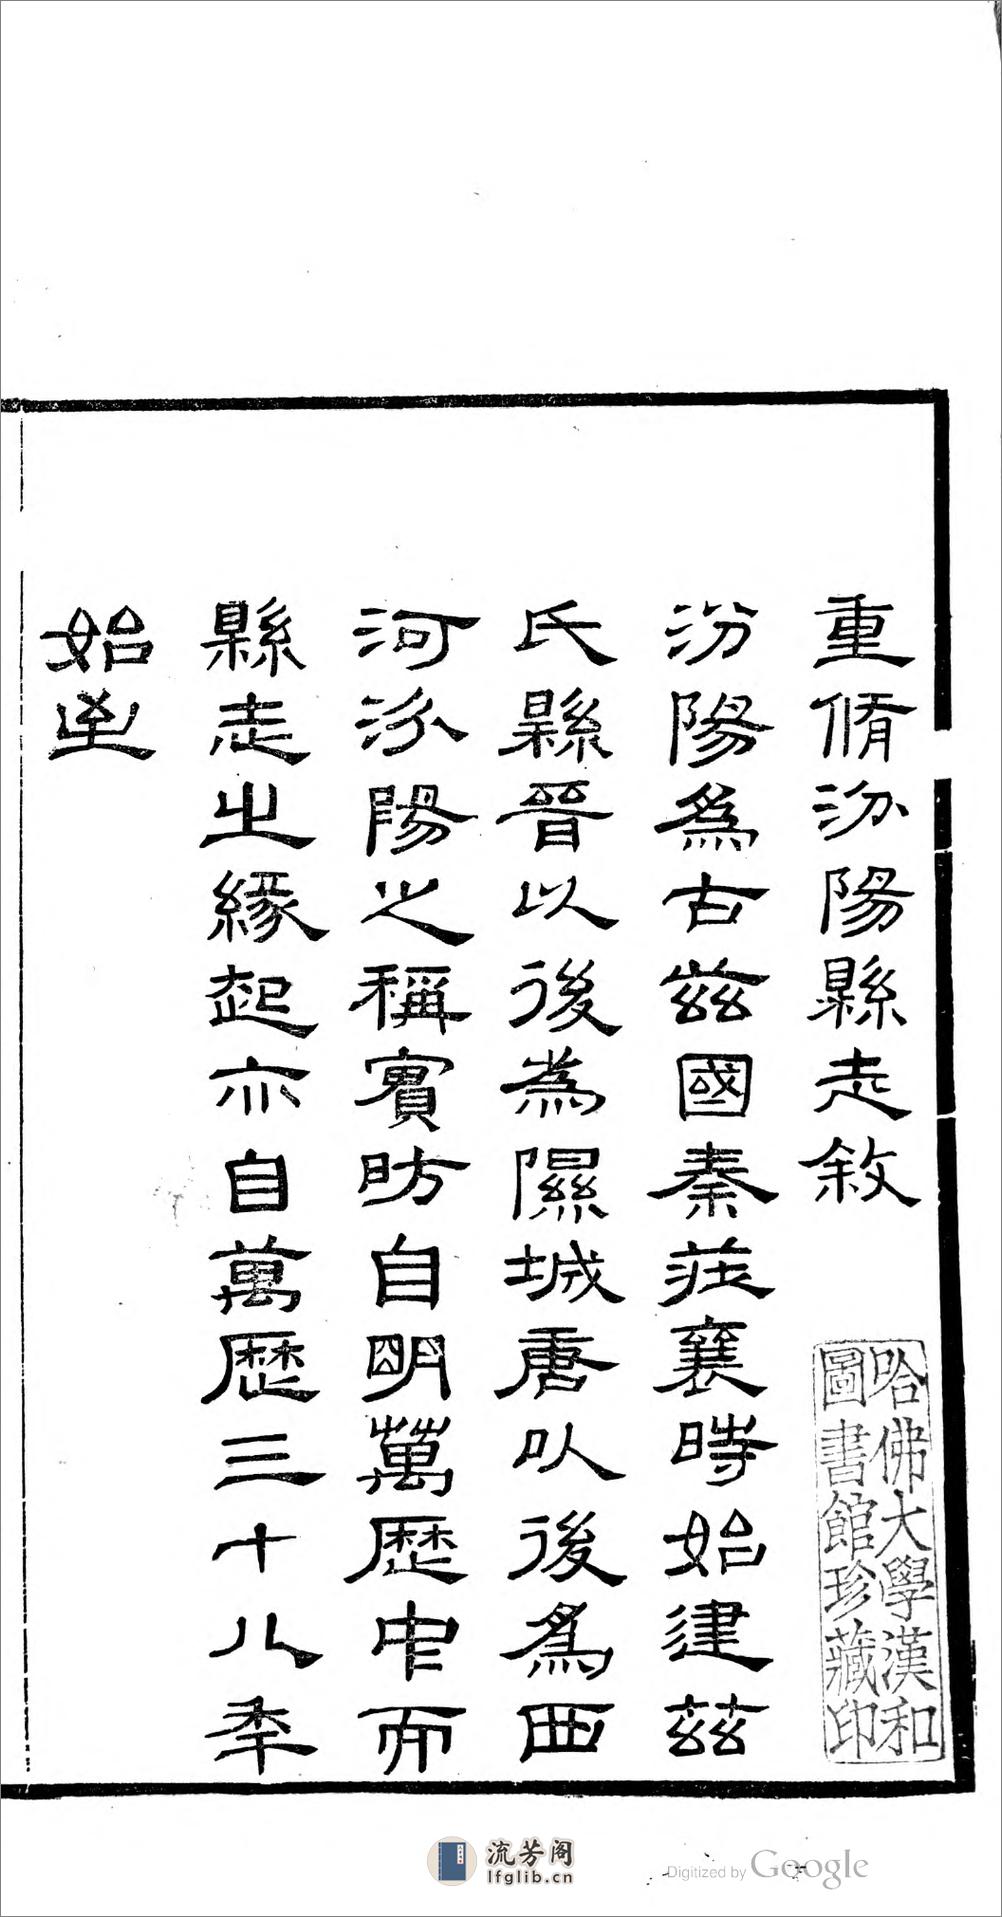 重脩汾陽縣志敘
汾陽爲古兹國秦莊襄時始建兹
氏縣晉以後為隰城唐以後爲西
河汾陽之稱實昉自明萬歷中而
縣志之緣起亦自萬歷三十八年
始
哈佛大學漢和
圖書館珍藏印
流芳阁
lfglib.cn
Digitized by Google